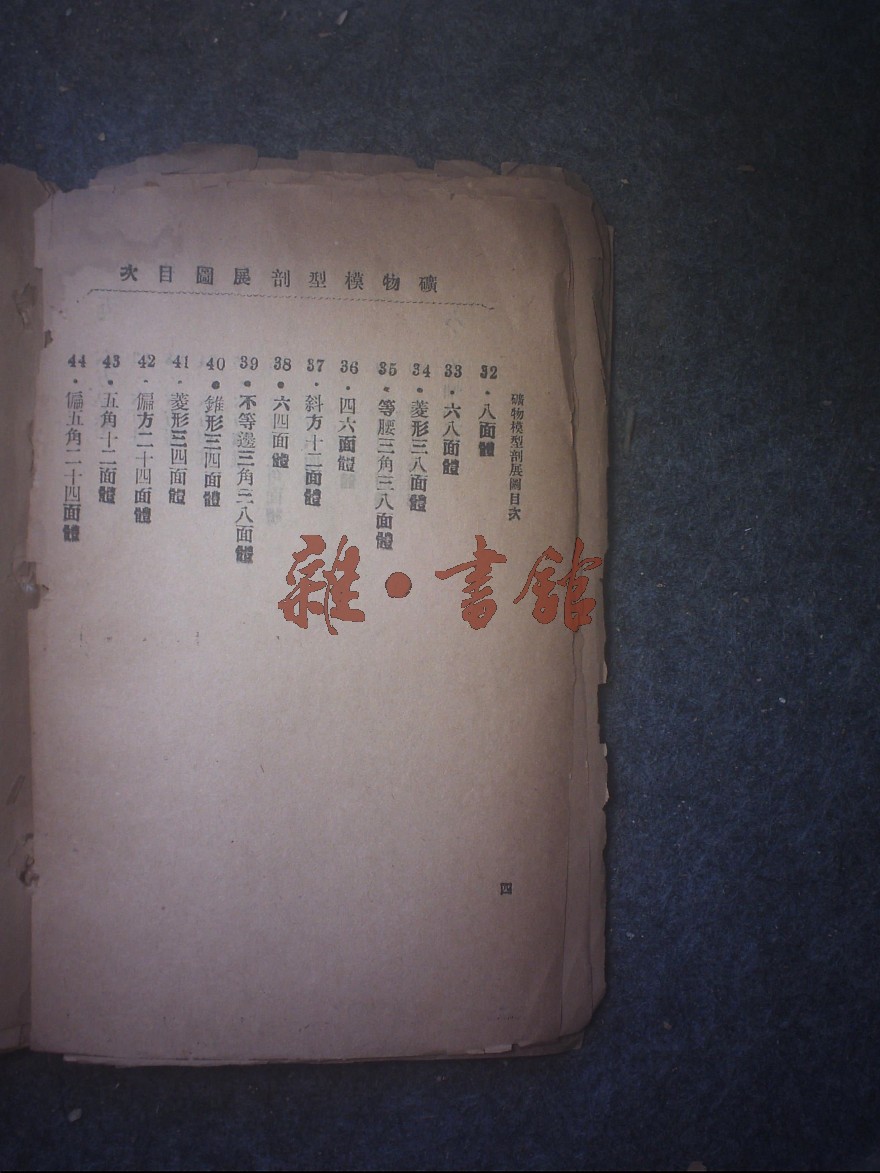 礦物模型剖展圖目次
礦物模型剖展圖目次
32．八面體
33．六八面體
34．菱形三八面體
35．等腰三角三八面體
36．四六面體
37．斜方十二面體
38．六四面體
39．不等邊三角三八面體
40．錐形三四面體
41．菱形三四面體
42．偏方二十四面體
43．五角十二面體
44．偏五角二十四面體
四
雜·書館